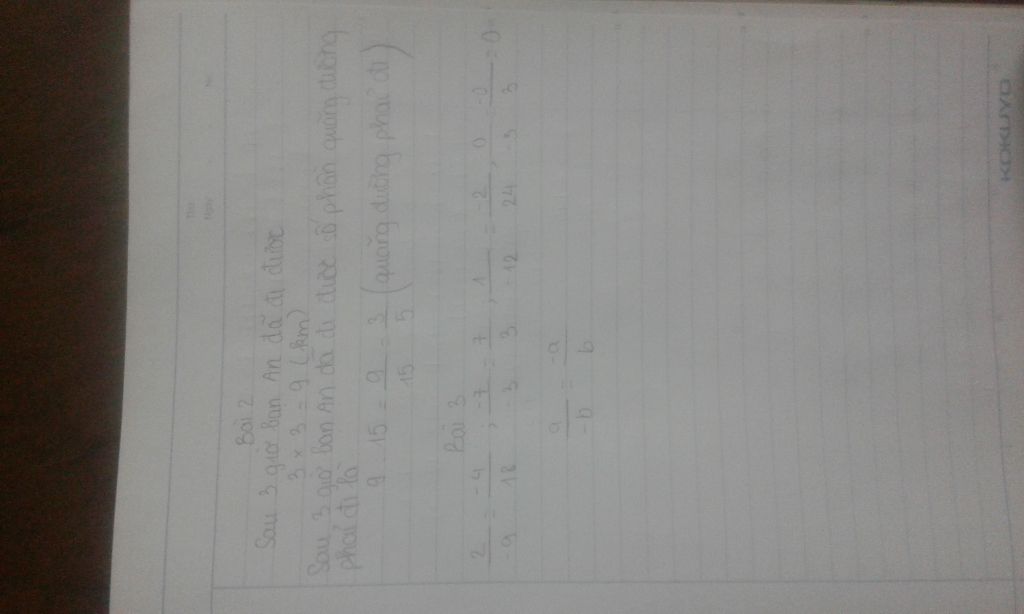 Thứ
Ngày
No.
Bài 2
Sau 3 giờ bạn An đã đi được
3 x 3 = 9 (km)
Sau 3 giờ bạn An đã đi được số phần quãng đường
phải đi là
9 : 15 = 9/15 = 3/5 (quãng đường phải đi)
Bài 3
2/-9 = -4/18 ; -7/-3 = 7/3 , 1/-12 = -2/24 , 0/-3 = -0/3 = 0
a/-b = -a/b
KOKUYO